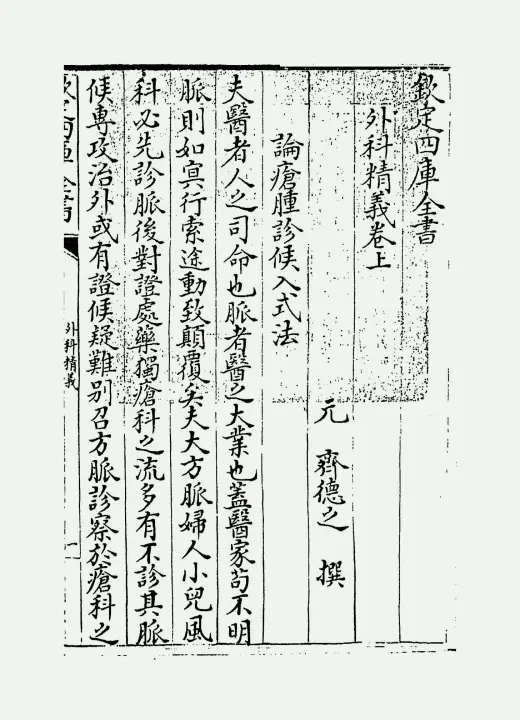 欽定四庫全書
外科精義卷上
元 齊德之 撰
論瘡腫診候入式法
夫醫者人之司命也脈者醫之大業也蓋醫家苟不明
脈則如冥行索途動致顛覆矣夫大方脈婦人小兒風
科必先診脈後對證處藥獨瘡科之流多有不診其脈
候專攻治外或有證候疑難别召方脈診察於瘡科之
欽定四庫全書
外科精義
一